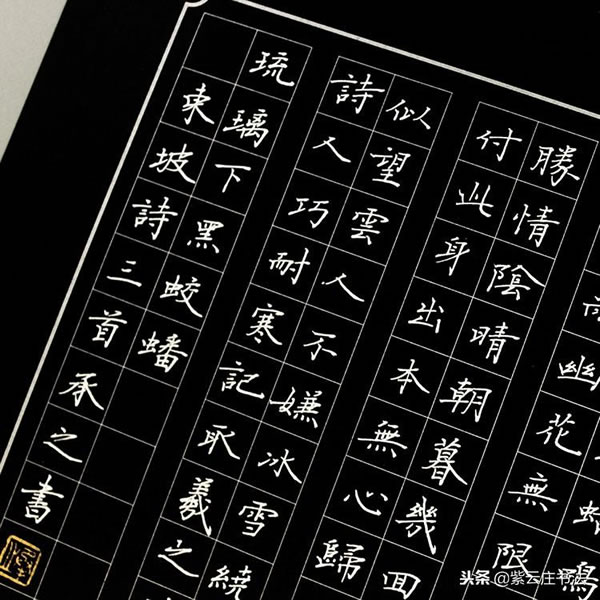 鳴
幽花無限
勝情陰晴朝暮幾回
付此身出本無心歸
似望雲人不嫌冰雪繞
詩人巧耐寒記取羲之
琉璃下黑蛟蟠
東坡詩三首承之書
头条 @紫云庄书法